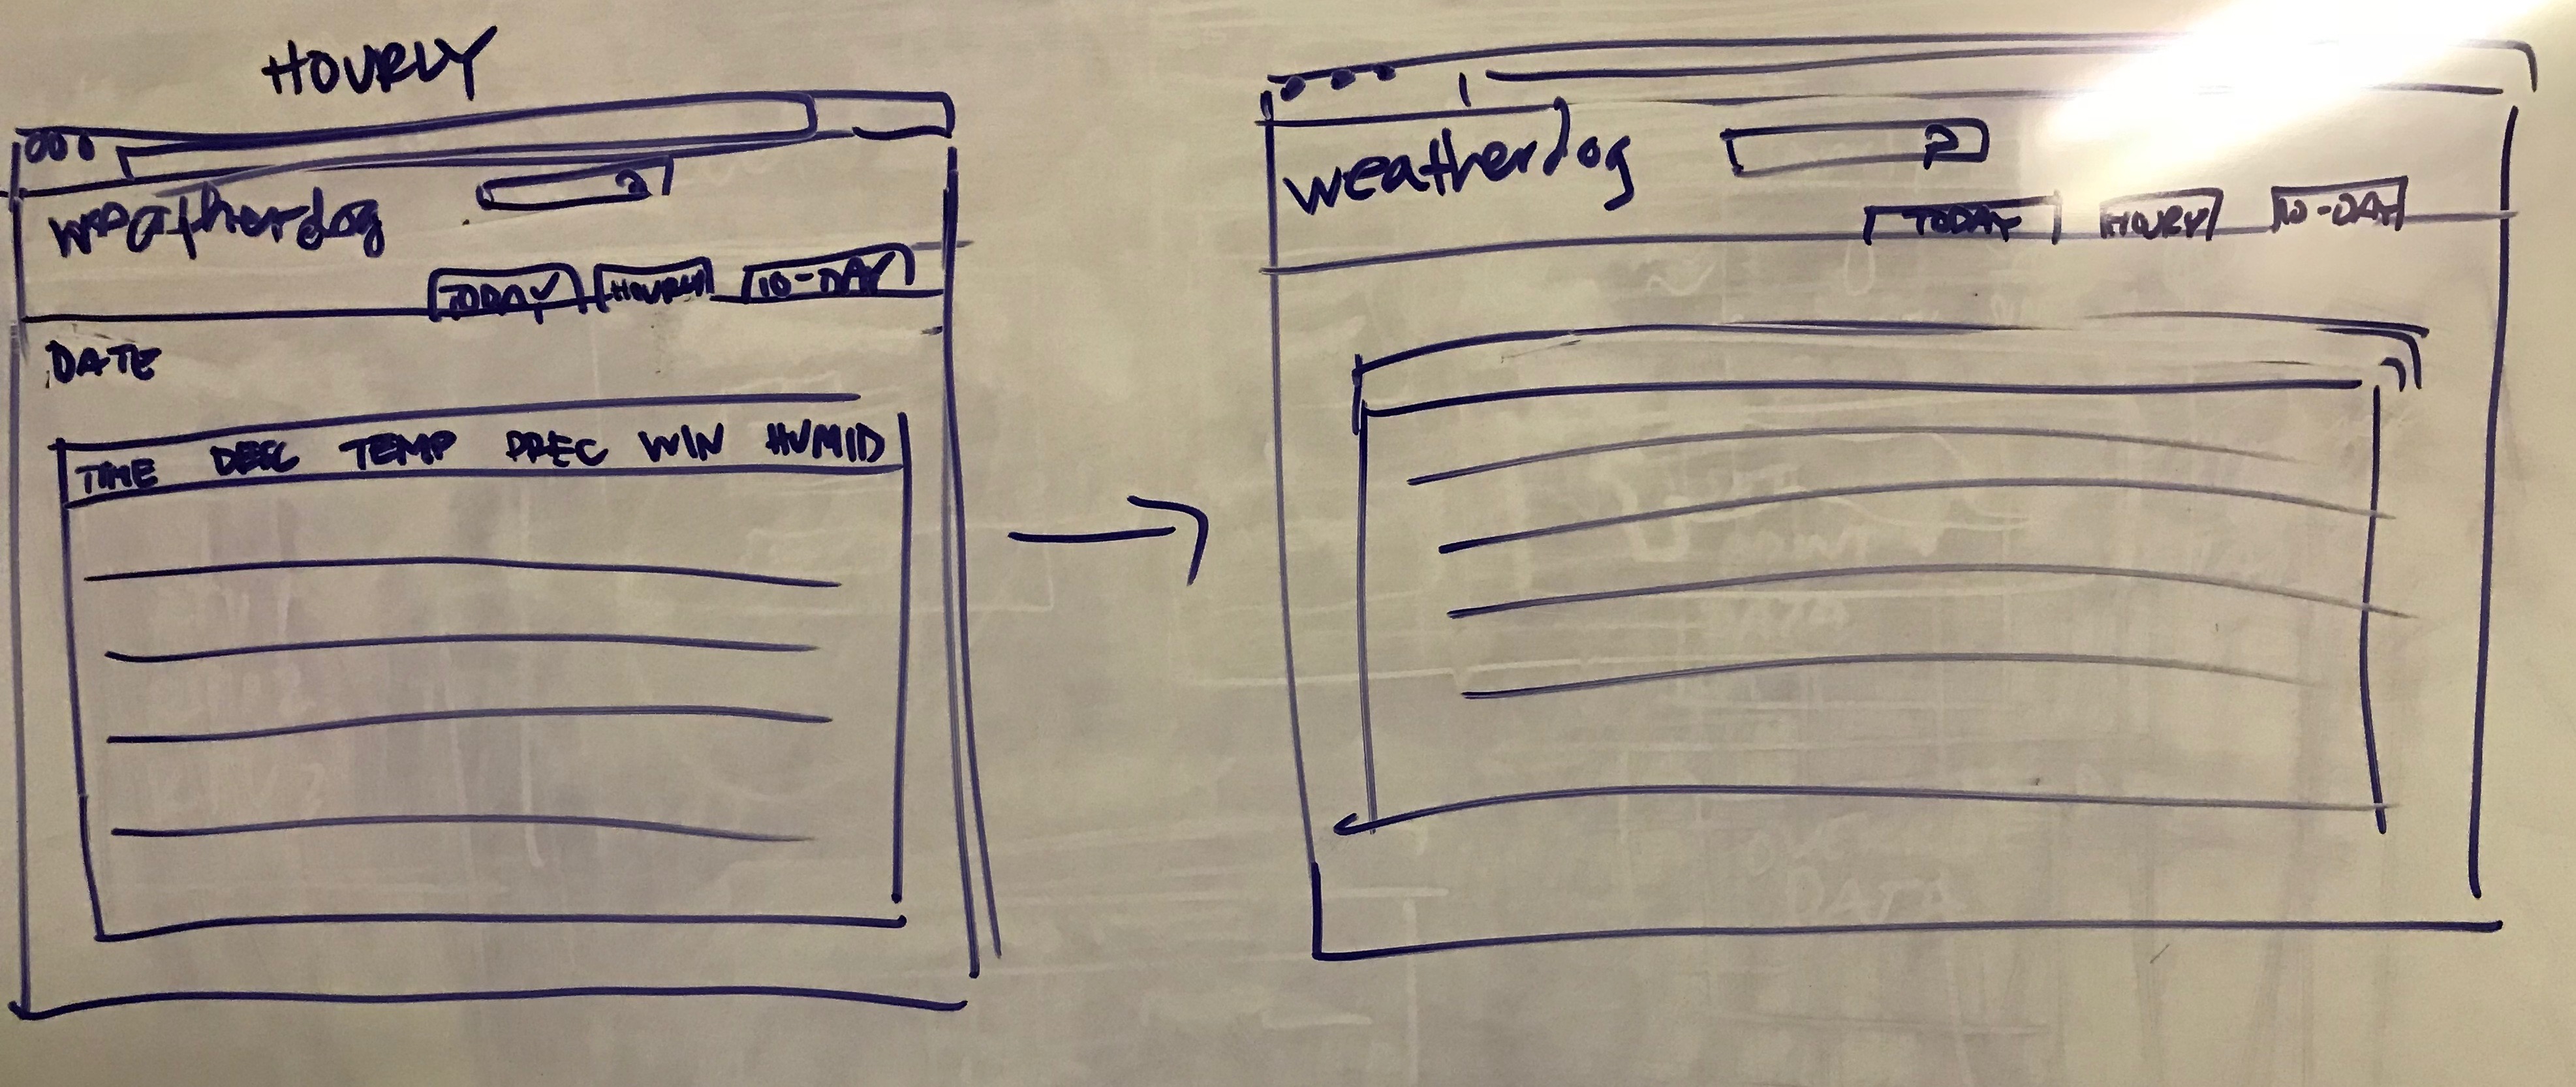 HOURLY
weatherdog
TODAY HOURLY 10-DAY
DATE
TIME DESC TEMP PREC WIN HUMID
weatherdog
TODAY HOURY 10-DAY
DATA
DATA